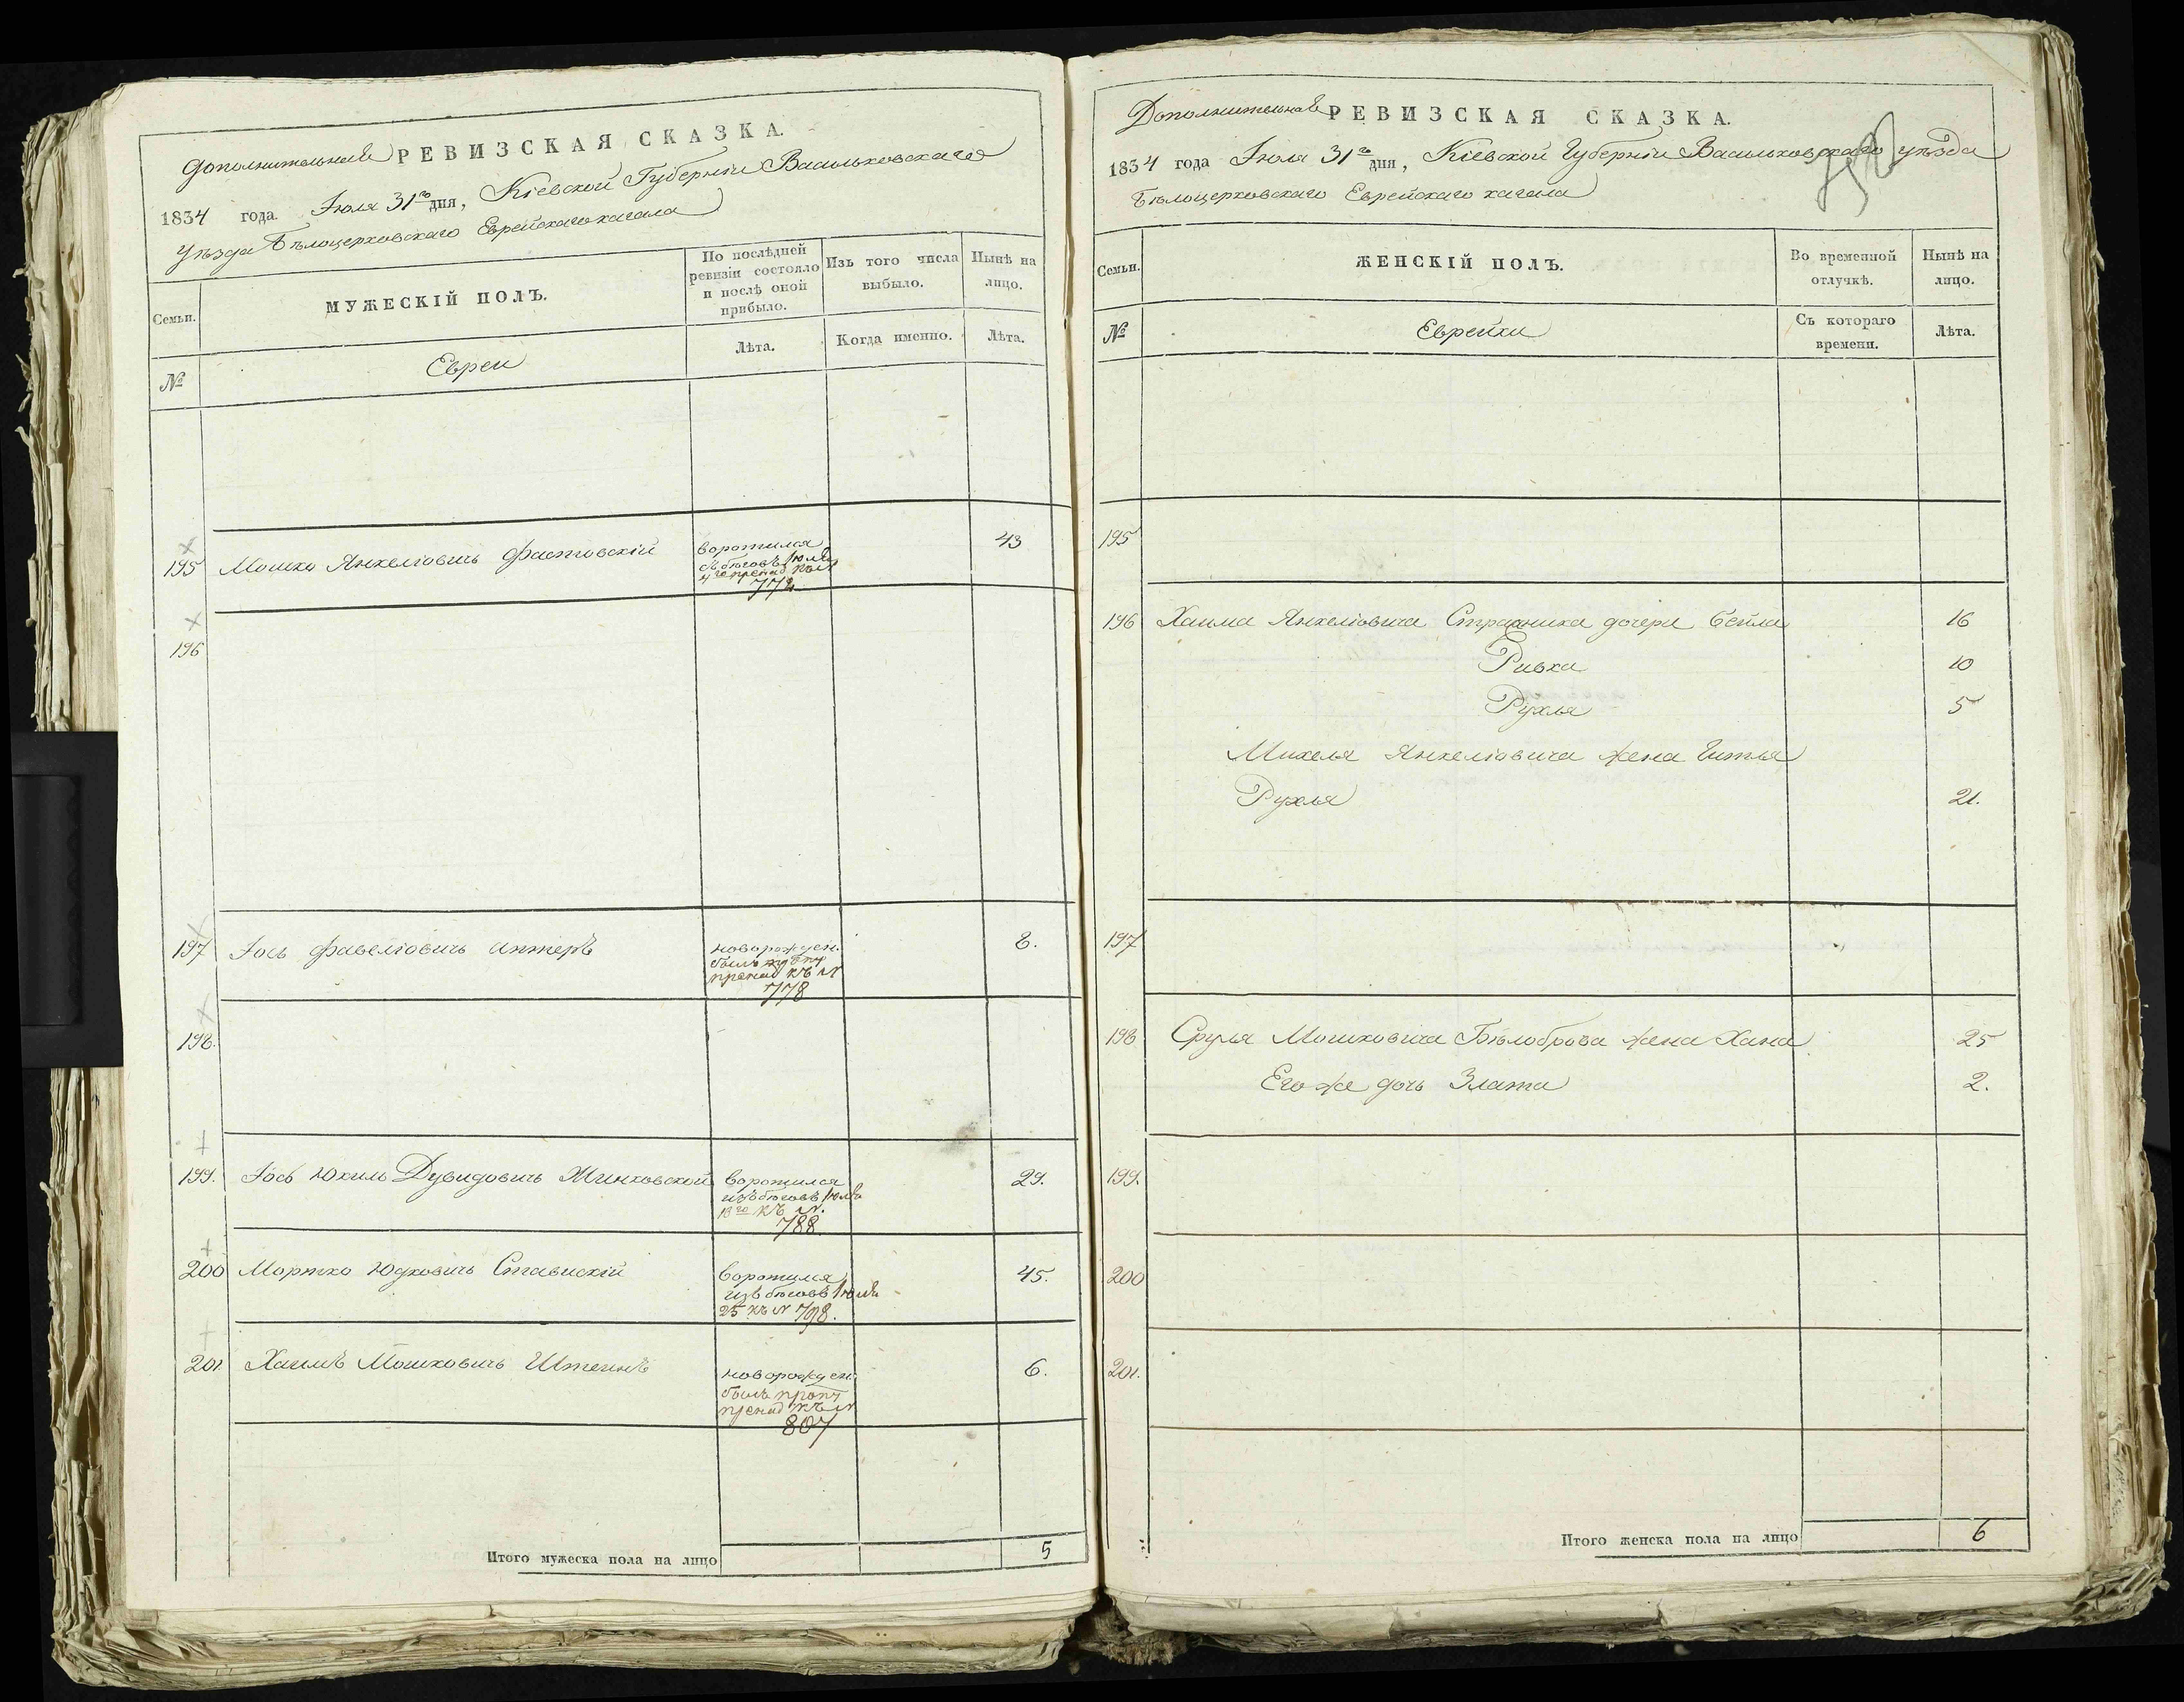 Дополнительная РЕВИЗСКАЯ СКАЗКА.
1834 года. Июля 31го дня, Кіевской Губерніи Васильковскаго
уѣзда Бѣлоцерковскаго Еврейскаго кагала
Семьи.
МУЖЕСКІЙ ПОЛЪ.
По послѣдней
ревизіи состояло
и послѣ оной
прибыло.
Изъ того числа
выбыло.
Нынѣ на
лицо.
№
Евреи
Лѣта.
Когда именно.
Лѣта.
195 Мошко Янкеліовичь Фастовскій воротился 43
съ бѣговъ Іюля
4го къ №
772
196
197 Іось Фавеліовичь 8.
новорожден.
былъ
къ №
778
198.
199. Іось Юхиль Дувидовичь Минковской воротился 29.
изъ бѣговъ Іюля
18го къ №.
788.
200 Мортко Юдковичь Ставискій воротился 45.
изъ бѣговъ Іюля
25 къ № 798.
201. Хаимъ Мошковичь Штеинъ новорожден. 6.
былъ проп
къ №
807
Итого мужеска пола на лицо 5
Дополнительная РЕВИЗСКАЯ СКАЗКА.
1834 года Июля 31го дня, Кіевской Губерніи Васильковскаго уѣзда
Бѣлоцерковскаго Еврейскаго кагала
Семьи.
ЖЕНСКІЙ ПОЛЪ.
Во временной
отлучкѣ.
Нынѣ на
лицо.
№
Еврейки
Съ котораго
времени.
Лѣта.
195
196 Хаима Янкеліовича дочери Бейла 16
Ривка 10
Рухля 5
Михеля Янкеліовича жена Гитля
Рухля 21.
197
198 Сруля Мошковича Бѣлоброва жена Хана 25
Его же дочь Злата 2.
199.
200
201.
Итого женска пола на лицо 6